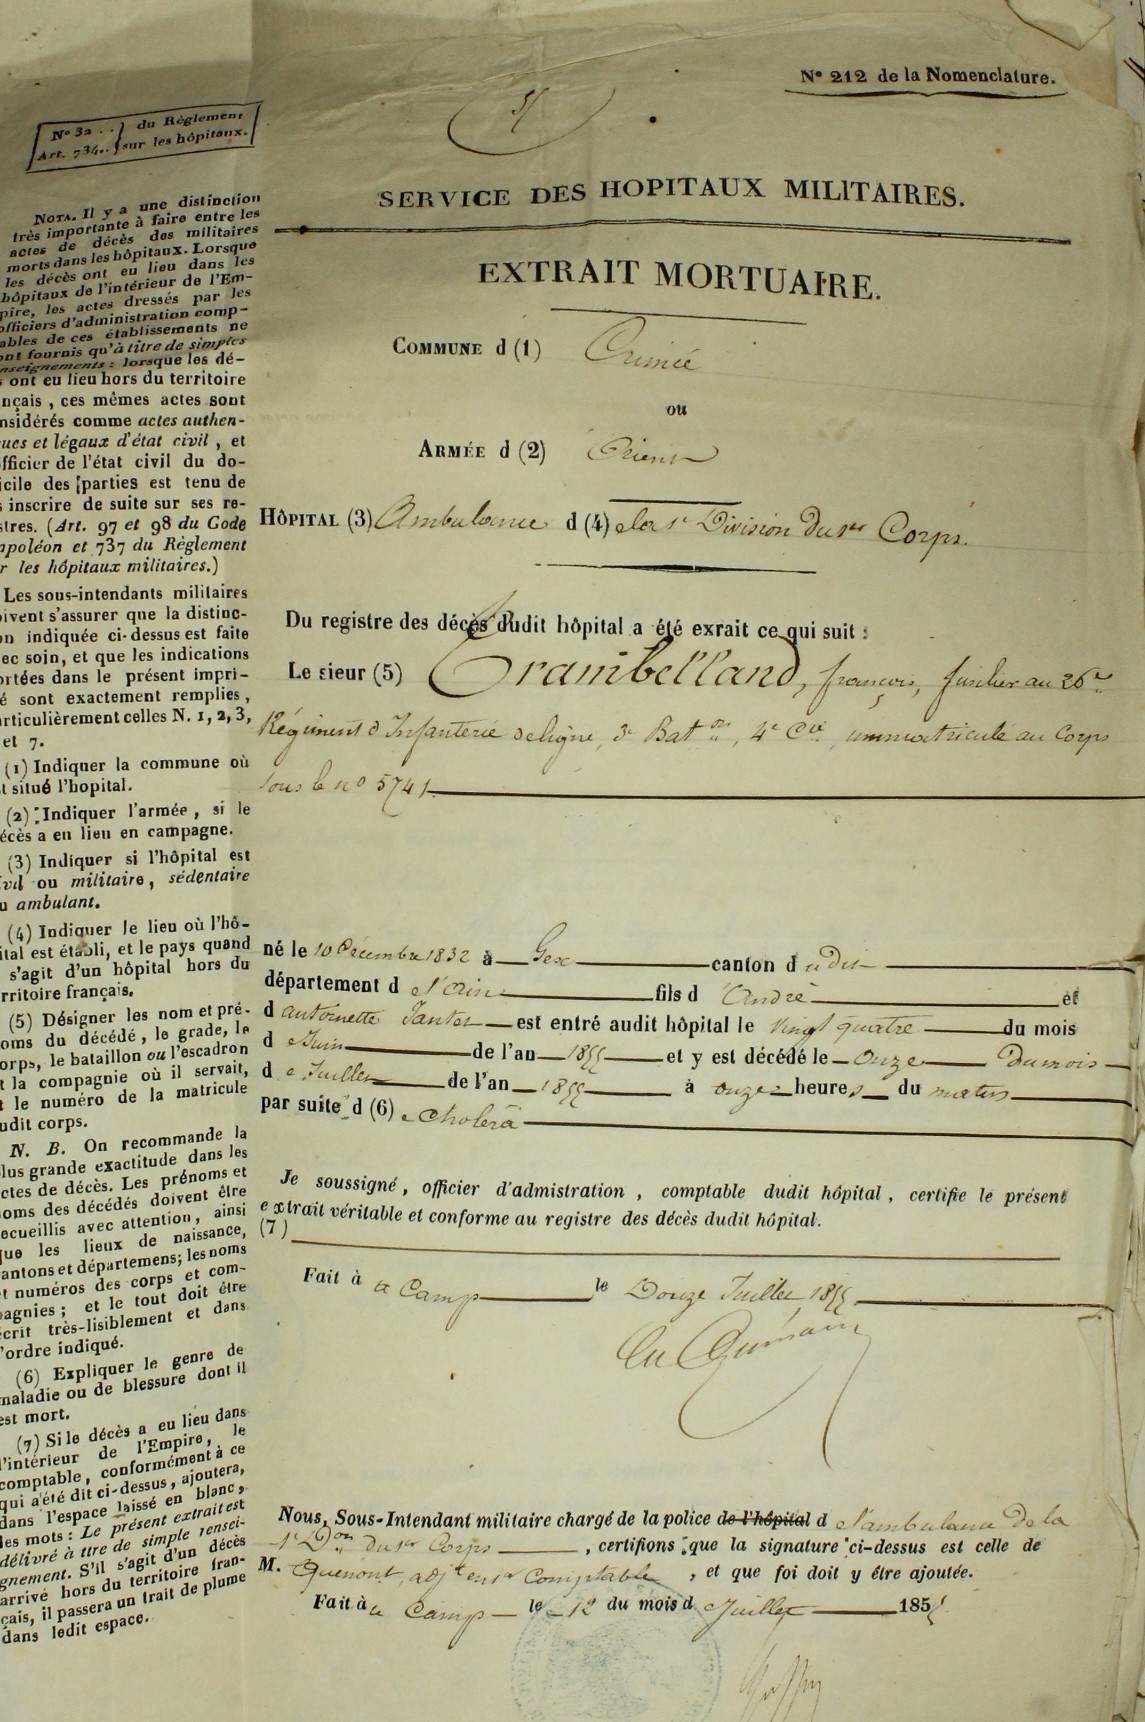 Nº 212 de la Nomenclature.
Nº 32 . . } du Règlement
Art. 734.. } sur les hôpitaux.
SERVICE DES HOPITAUX MILITAIRES.
EXTRAIT MORTUAIRE.
COMMUNE d (1) Crimée
ou
ARMÉE d (2) Orient
HÔPITAL (3) Ambulance d (4) e la 1e Division Du 1er Corps.
Du registre des décès dudit hôpital a été exrait ce qui suit :
Le sieur (5) Crambelland, françois, fusilier au 26e
Régiment d'Infanterie de ligne, 3e Baton, 4e Cie, immatriculé au Corps
sous le nº 5741
né le 10 Décembre 1832 à Gex canton d udit
département d e l'ain fils d 'André et
d'antoinette est entré audit hôpital le vingt quatre du mois
d e Juin de l'an 1855 et y est décédé le onze Du mois
d e Juillet de l'an 1855 à onze heures du matin
par suite d (6) e choléra
Je soussigné, officier d'admistration, comptable dudit hôpital, certifie le présent
extrait véritable et conforme au registre des décès dudit hôpital.
(7)
Fait à u Camp le Douze Juillet 1855
Nous, Sous-Intendant militaire chargé de la police de l'hôpital d e l'ambulance De la
1e Don du 1er Corps , certifions que la signature ci-dessus est celle de
M. adjt en 1er Comptable , et que foi doit y être ajoutée.
Fait à u Camp le 12 du mois d e Juillet 1855
NOTA. Il y a une distinction
très importante à faire entre les
actes de décès des militaires
morts dans les hôpitaux. Lorsque
les décès ont eu lieu dans les
hôpitaux de l'intérieur de l'Em-
pire, les actes dressés par les
officiers d'administration comp-
ables de ces établissements ne
ont fournis qu'à titre de simples
nseignements : lorsque les dé-
s ont eu lieu hors du territoire
nçais, ces mêmes actes sont
nsidérés comme actes authen-
ues et légaux d'état civil, et
fficier de l'état civil du do-
icile des parties est tenu de
s inscrire de suite sur ses re-
stres. (Art. 97 et 98 du Code
apoléon et 737 du Règlement
r les hôpitaux militaires.)
Les sous-intendants militaires
oivent s'assurer que la distinc-
on indiquée ci-dessus est faite
ec soin, et que les indications
ortées dans le présent impri-
é sont exactement remplies,
articulièrement celles N. 1, 2, 3,
et 7.
(1) Indiquer la commune où
t situé l'hopital.
(2) Indiquer l'armée, si le
écès a eu lieu en campagne.
(3) Indiquer si l'hôpital est
ivil ou militaire, sédentaire
u ambulant.
(4) Indiquer le lieu où l'hô-
ital est établi, et le pays quand
s'agit d'un hôpital hors du
rritoire français.
(5) Désigner les nom et pré-
oms du décédé, le grade, le
orps, le bataillon ou l'escadron
t la compagnie où il servait,
t le numéro de la matricule
udit corps.
N. B. On recommande la
lus grande exactitude dans les
ctes de décès. Les prénoms et
oms des décédés doivent être
ecueillis avec attention, ainsi
que les lieux de naissance,
antons et départemens; les noms
t numéros des corps et com-
pagnies; et le tout doit être
écrit très-lisiblement et dans
l'ordre indiqué.
(6) Expliquer le genre de
maladie ou de blessure dont il
est mort.
(7) Si le décès a eu lieu dans
l'intérieur de l'Empire, le
comptable, conformément à ce
qui a été dit ci-dessus, ajoutera,
dans l'espace laissé en blanc,
les mots : Le présent extrait est
délivré à titre de simple rensei-
gnement. S'il s'agit d'un décès
arrivé hors du territoire fran-
çais, il passera un trait de plume
dans ledit espace.